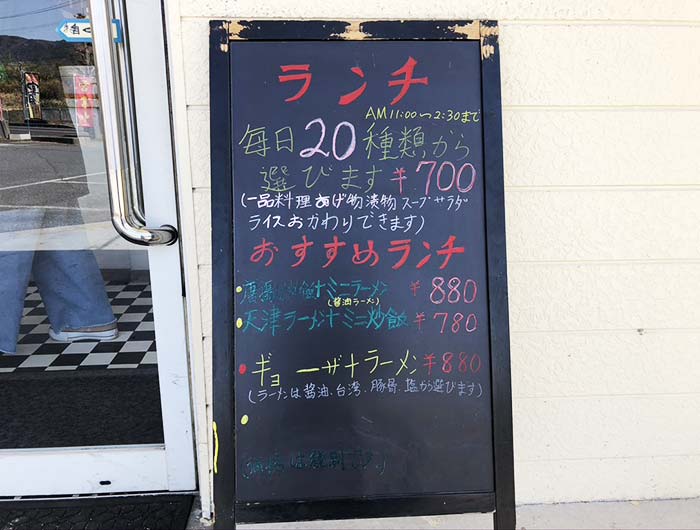 ランチ
AM11:00〜2:30まで
毎日20種類から
選びます ¥700
(一品料理 あげ物 漬物 スープ サラダ
ライスおかわりできます)
おすすめランチ
飯+ミニラーメン ¥880
(醤油ラーメン)
天津ラーメン+ミニ炒飯 ¥780
ギョーザ+ラーメン ¥880
(ラーメンは醤油、台湾、豚骨、塩から選びます)
は税別です)